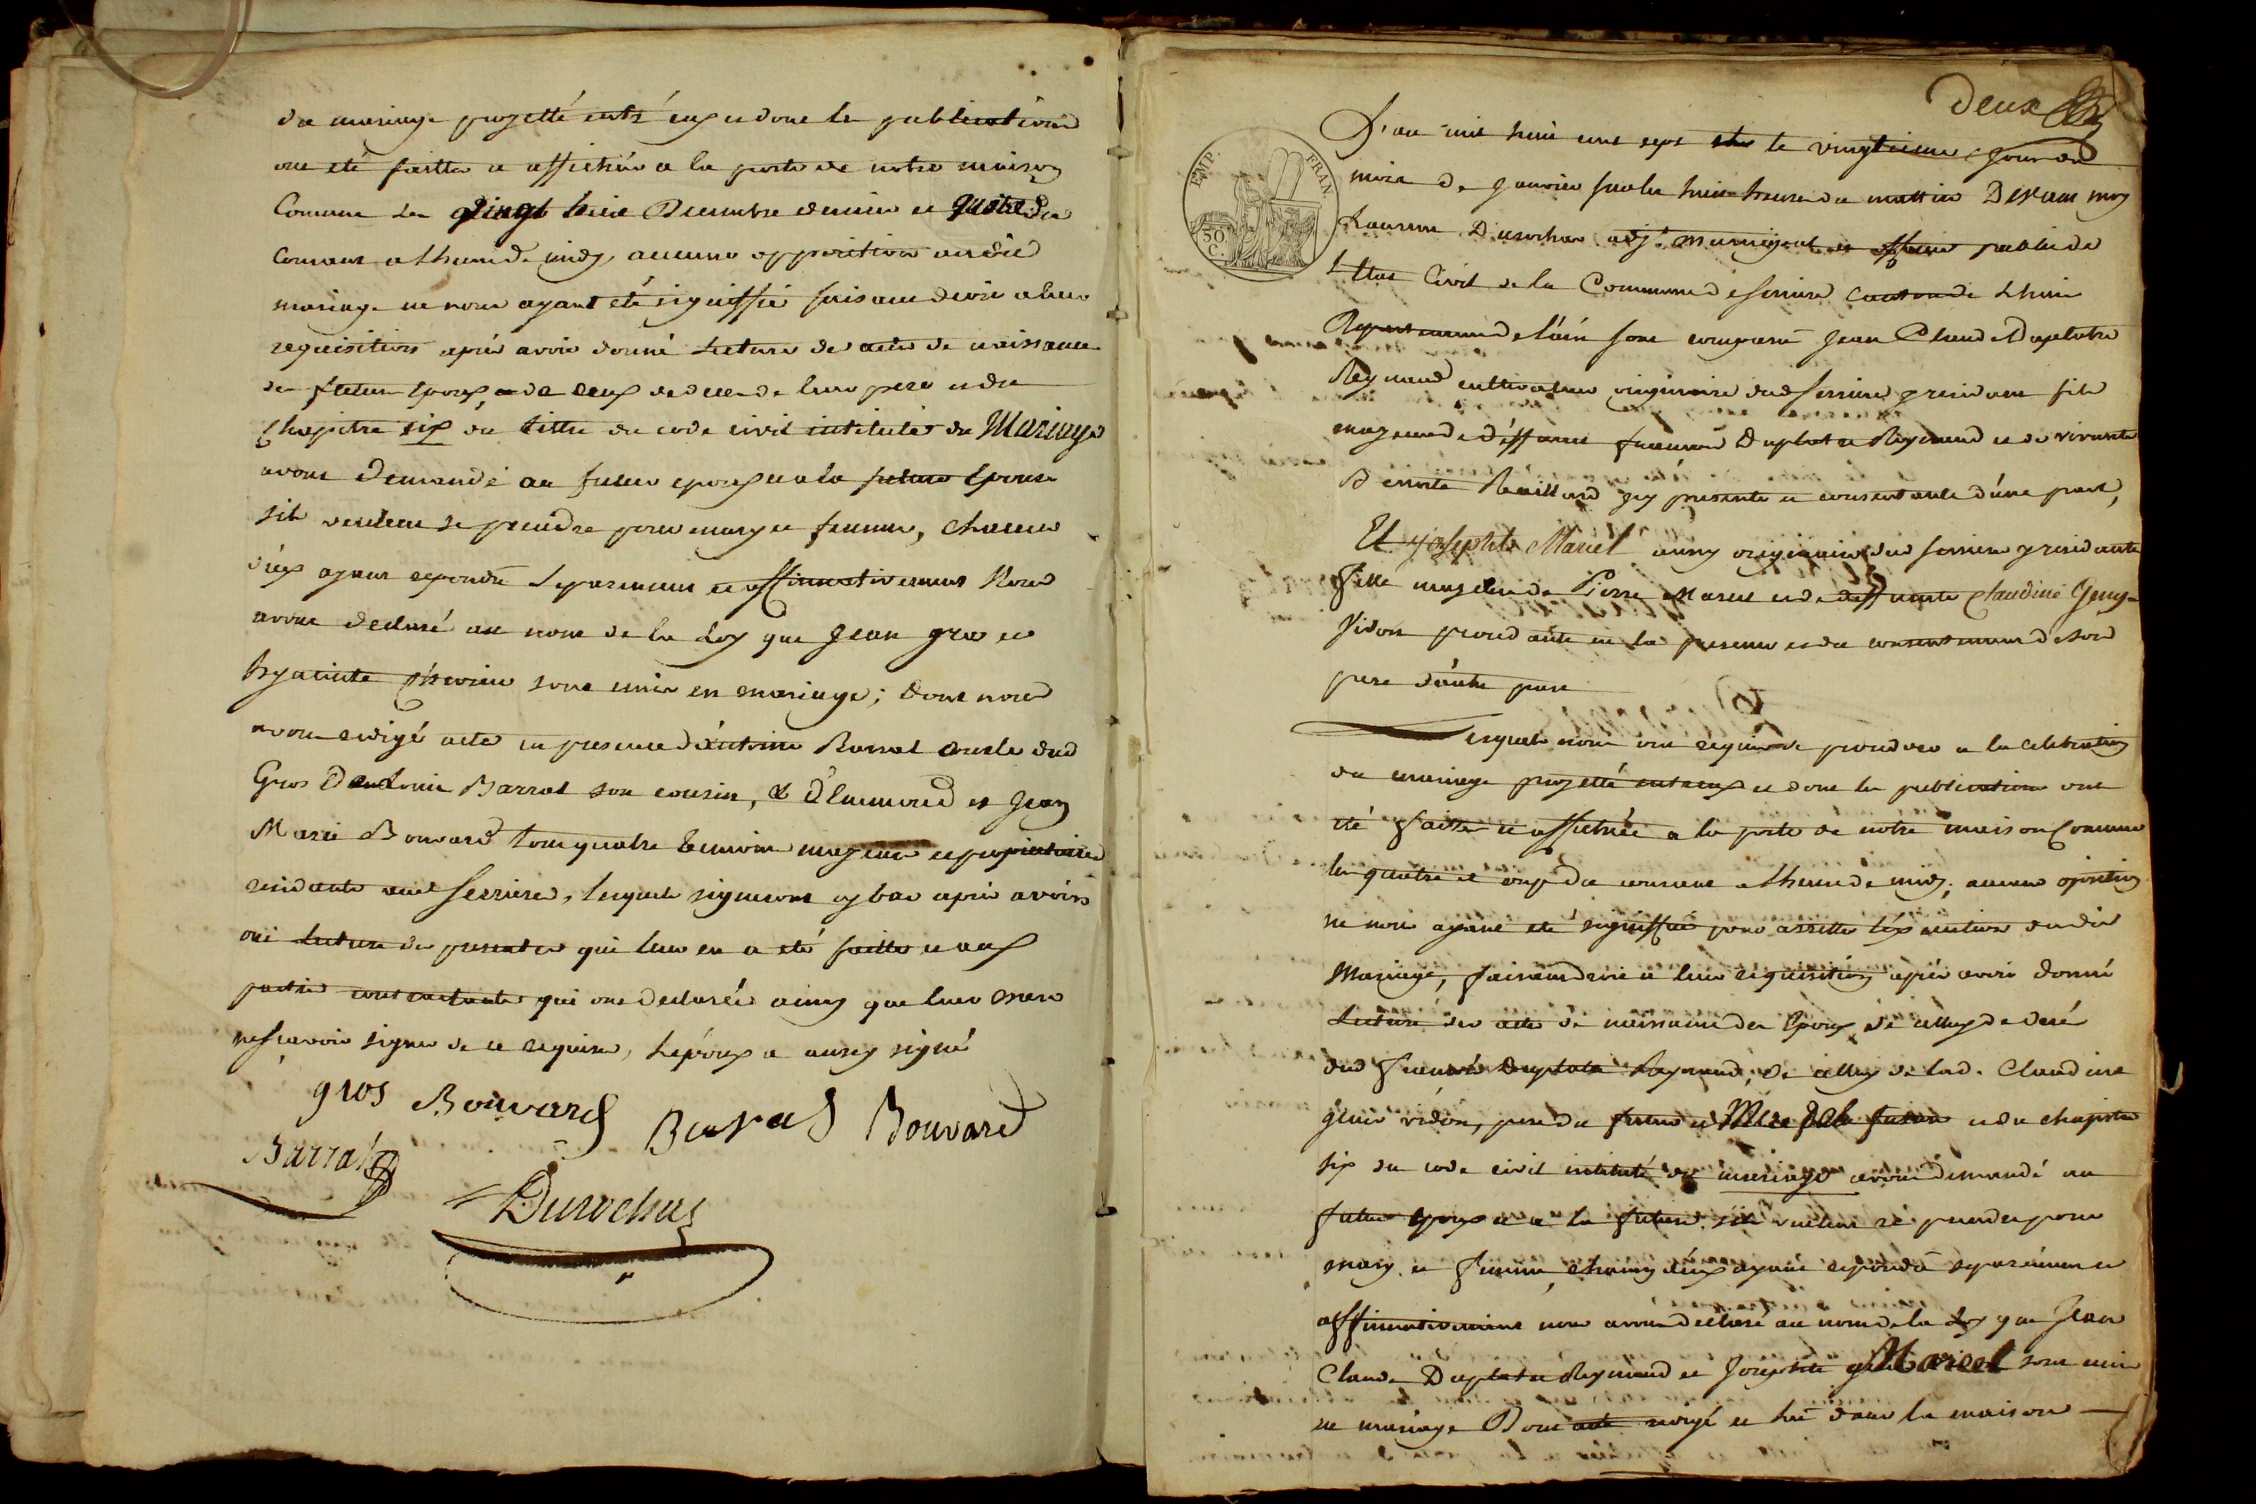 du mariage projetté entré eux et dont les publications
ont eté faittes et affichées a la porte de notre maison
Comune les vingt huit Decembre dernier et quatre du
Courant a lheure de midy, aucune opposition audit
mariage ne nous ayant eté signiffié faisant droit a leur
requisition aprés avoir donné Lecture des actes de naissance
des futurs Epoux, de ceux de deces de leurs pere et du
Chapitre six du tittre du code civil intitulé du Mariage
avons Demandé au futur epoux et a la future Epouse
sils veulent se prendre pour mary et femme, chacun
d'eux ayant repondu separement et affirmativement Nous
avons declaré au nom de la Loy que Jean gros et
hyacinte sont unis en mariage; dont nous
avons redigé acte en presence d'antoine Barrat oncle dud
Gros D'antoine Barrat son cousin, & d'Eunemond et Jean
Marie Bouvard tous quatre temoins majeurs et propriétaires
residants aud Serrieres, lesquels signeront cy bas après avoir
oui Lecture des presentes qui leur en a eté faitte et aux
parties contractantes qui ont declarées ainsy que leurs meres
ne scavoir signer de ce requises, Lépoux a aussy signé
gros Bouvard Barrat Bouvard
Barrat
Durochat
Deux
EMP. FRAN.
50 C.
L'an mil huit cent sept le vingtieme jour du
mois de Janvier sur les huit heures du mattin Devant moy
Durochat adjt municipal et officier public de
L'Etat Civil de la Commune de Serrieres Canton de Lhuis
Departement de l'ain sont comparu Jean Claude Duplatre
Reymond cultivateur originaire dud Serrieres y residant fils
majeur de deffunt Duplatre Reymond et de vivante
Benoite Reveillard icy presente et consentante d'une part,
Et Josephte Marcel aussy originaire dud Serrieres y residante
fille majeure de Pierre Marcel et de deffunte Claudine
Vidon procedante en la presence et du consentement de son
pere d'autre part
Lesquels nous ont requis de proceder a la celebration
du mariage projetté entreux et dont les publications ont
eté faittes et affichées a la porte de notre maison Comune
les quatre et onze du courant a lheure de midy, aucune oposition
ne nous ayant eté signiffiée pour arretter léxecution dudit
Mariage, faisant droit a leur requisition aprés avoir donné
Lecture des actes de naissance des Epoux, de celluy de decés
dud Duplatre Reymond, de celluy de lad. Claudine
vidon, pere du futur et Mere de la future et du chapitre
six du code civil intitulé du mariage avons demandé au
futur epoux et a la future sils veulent se prendre pour
mary et femme, chacun d'eux ayant repondu separément et
affirmativement nous avons declaré au nom de la Loy que Jean
Claude Duplatre Reymond et Josephte Marcel sont unis
en mariage Dont acte redigé et lu dans la maison